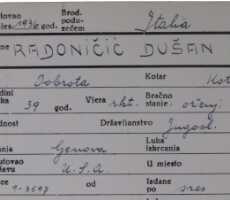 tovao 1936 god. Brod. podu- zećem Italia
RADONIČIĆ DUŠAN
Dobrota Kotar Kot
39 god. Vjera rkt. Bračno stanje oženj
dnost Državljanstvo Jugosl.
Genova Luka iskrcanja
utovao U.S.A. U mjesto
od Izdane po sres